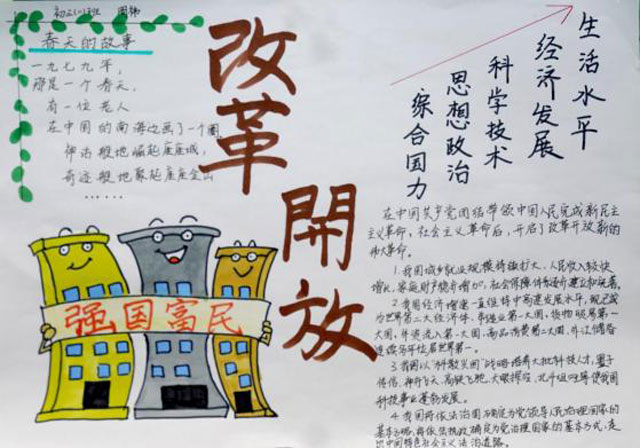 初三(1)班
春天的故事
一九七九年,
那是一个春天,
有一位老人
在中国的南海边画了一个圈
神话般地崛起座座城,
奇迹般地聚起座座金山
……
改革
開放
生活水平
经济发展
科学技术
思想政治
综合国力
强国富民
在中国共产党团结带领中国人民完成新民主
主义革命,社会主义革命后,开启了改革开放新的
伟大革命。
1.我国城乡就业规模持续扩大,人民收入较快
增长,家庭财产稳步增加,社会保障体系
2.我国经济增速一直保持中高速发展水平,现已成
为世界第二大经济体,制造业第一大国,货物贸易第一
大国,外资流入第一大国,商品消费第二大国,外汇储备
连续多年位居世界第一。
3.我国以"科教兴国"战略培养大批科技人才,墨子
传信,神舟飞天,高铁飞驰,大眼探空,北斗组网等使我国
科技事业蓬勃发展。
4.我国将依法治国确定为党领导人民治理国家的
基本方略,将依法执政确定为党治理国家的基本方式,走
出中国特色社会主义法治道路。